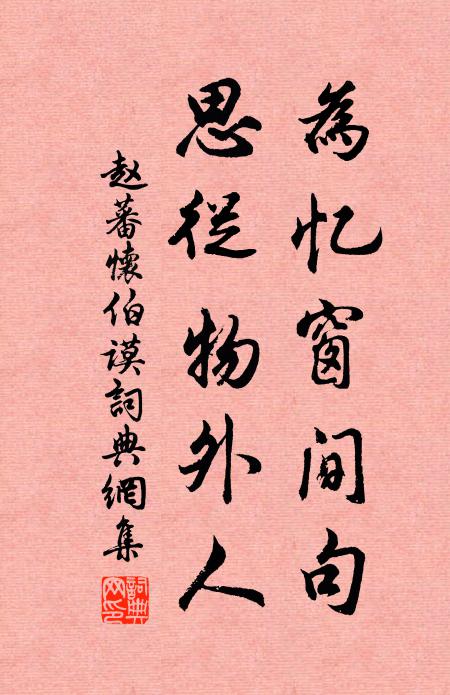 為忆窗间句
思從物外人
赵蕃懷伯谟詞典網集
詞典网印